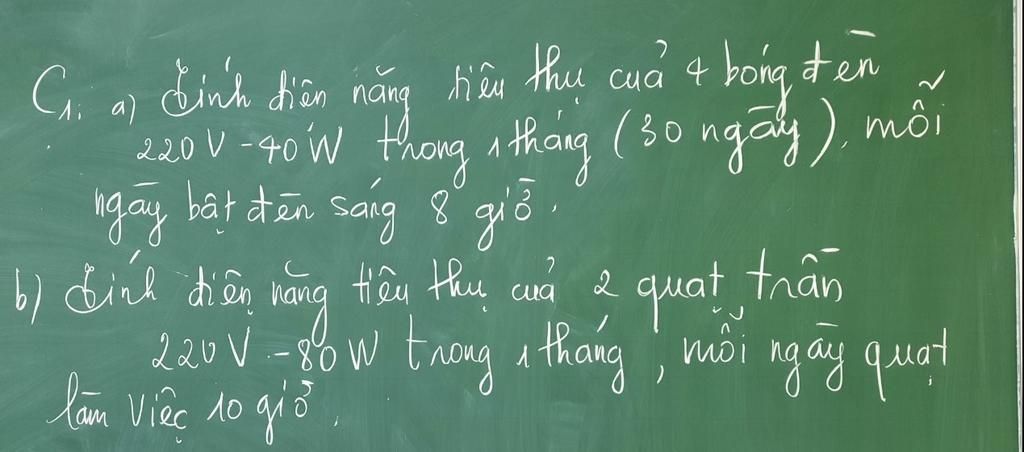 C1. a) Tính điện năng tiêu thụ của 4 bóng đèn
220V - 40W trong 1 tháng (30 ngày). mỗi
ngày bật đèn sáng 8 giờ.
b) Tính điện năng tiêu thụ của 2 quạt trần
220V - 80W trong 1 tháng, mỗi ngày quạt
làm việc 10 giờ.